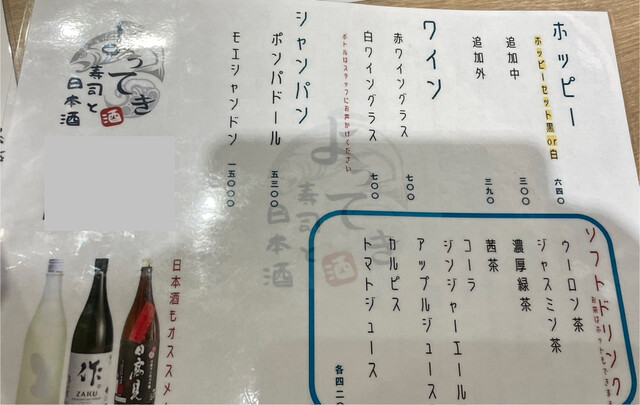 ホッピー
ホッピーセット黒or白 六四〇
追加中 三〇〇
追加外 三九〇
ワイン
赤ワイングラス 七〇〇
白ワイングラス 七〇〇
ボトルはスタッフにお声がけください
シャンパン
ポンパドール 五三〇〇
モエシャンドン 一五〇〇〇
よってき
寿司と
日本酒
酒
よってき
寿司と
日本酒
酒
ソフトドリンク
お茶はホットもできます
ウーロン茶
ジャスミン茶
濃厚緑茶
茜茶
コーラ
ジンジャーエール
アップルジュース
カルピス
トマトジュース
各四二〇
日本酒もオススメ
作
ZAKU
日高見